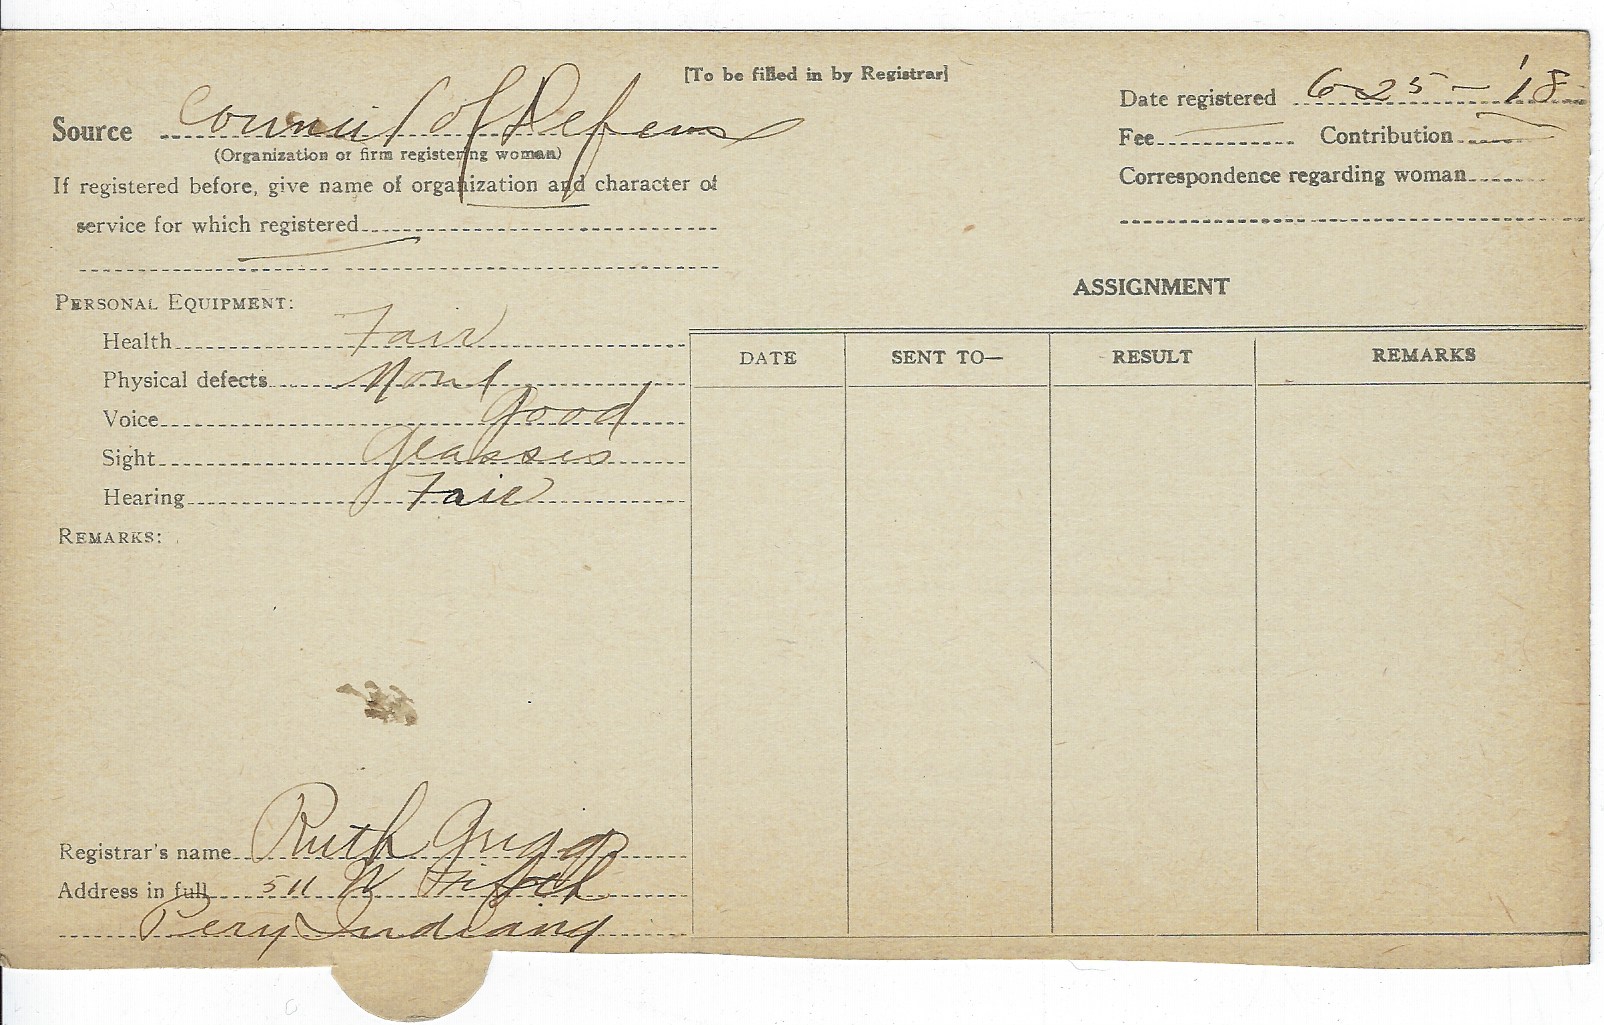 [To be filled in by Registrar]
Date registered 6-25-'18
Source Council of Defense
(Organization or firm registering woman)
Fee Contribution
If registered before, give name of organization and character of
Correspondence regarding woman
service for which registered
ASSIGNMENT
PERSONAL EQUIPMENT:
Health Fair
DATE SENT TO— RESULT REMARKS
Physical defects None
Voice Good
Sight Glasses
Hearing Fair
REMARKS:
Registrar's name Ruth Grigg
Address in full 511 W Fifth
Peru Indiana